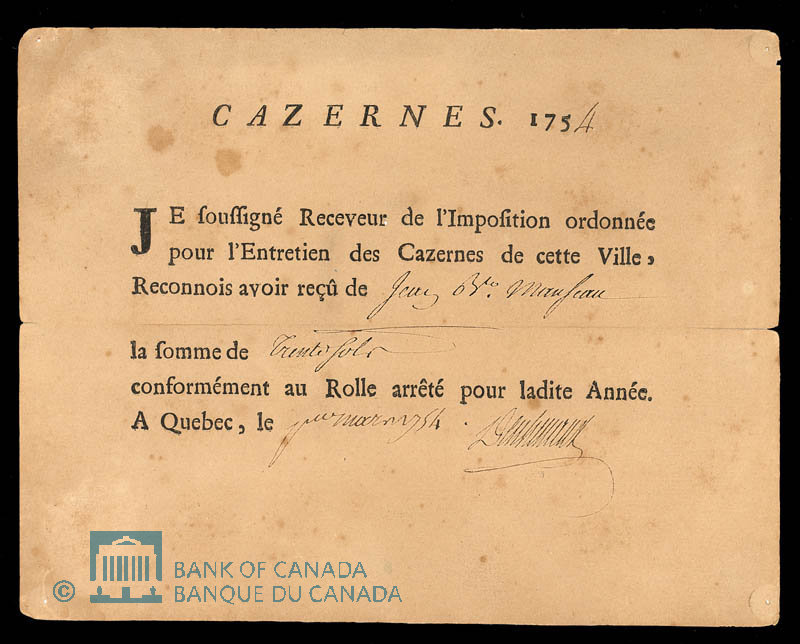 CAZERNES. 1754
JE soussigné Receveur de l'Imposition ordonnée
pour l'Entretien des Cazernes de cette Ville,
Reconnois avoir reçû de Jean Manseau
la somme de Trente sols
conformément au Rolle arrêté pour ladite Année.
A Quebec, le mars 1754.
© BANK OF CANADA
BANQUE DU CANADA